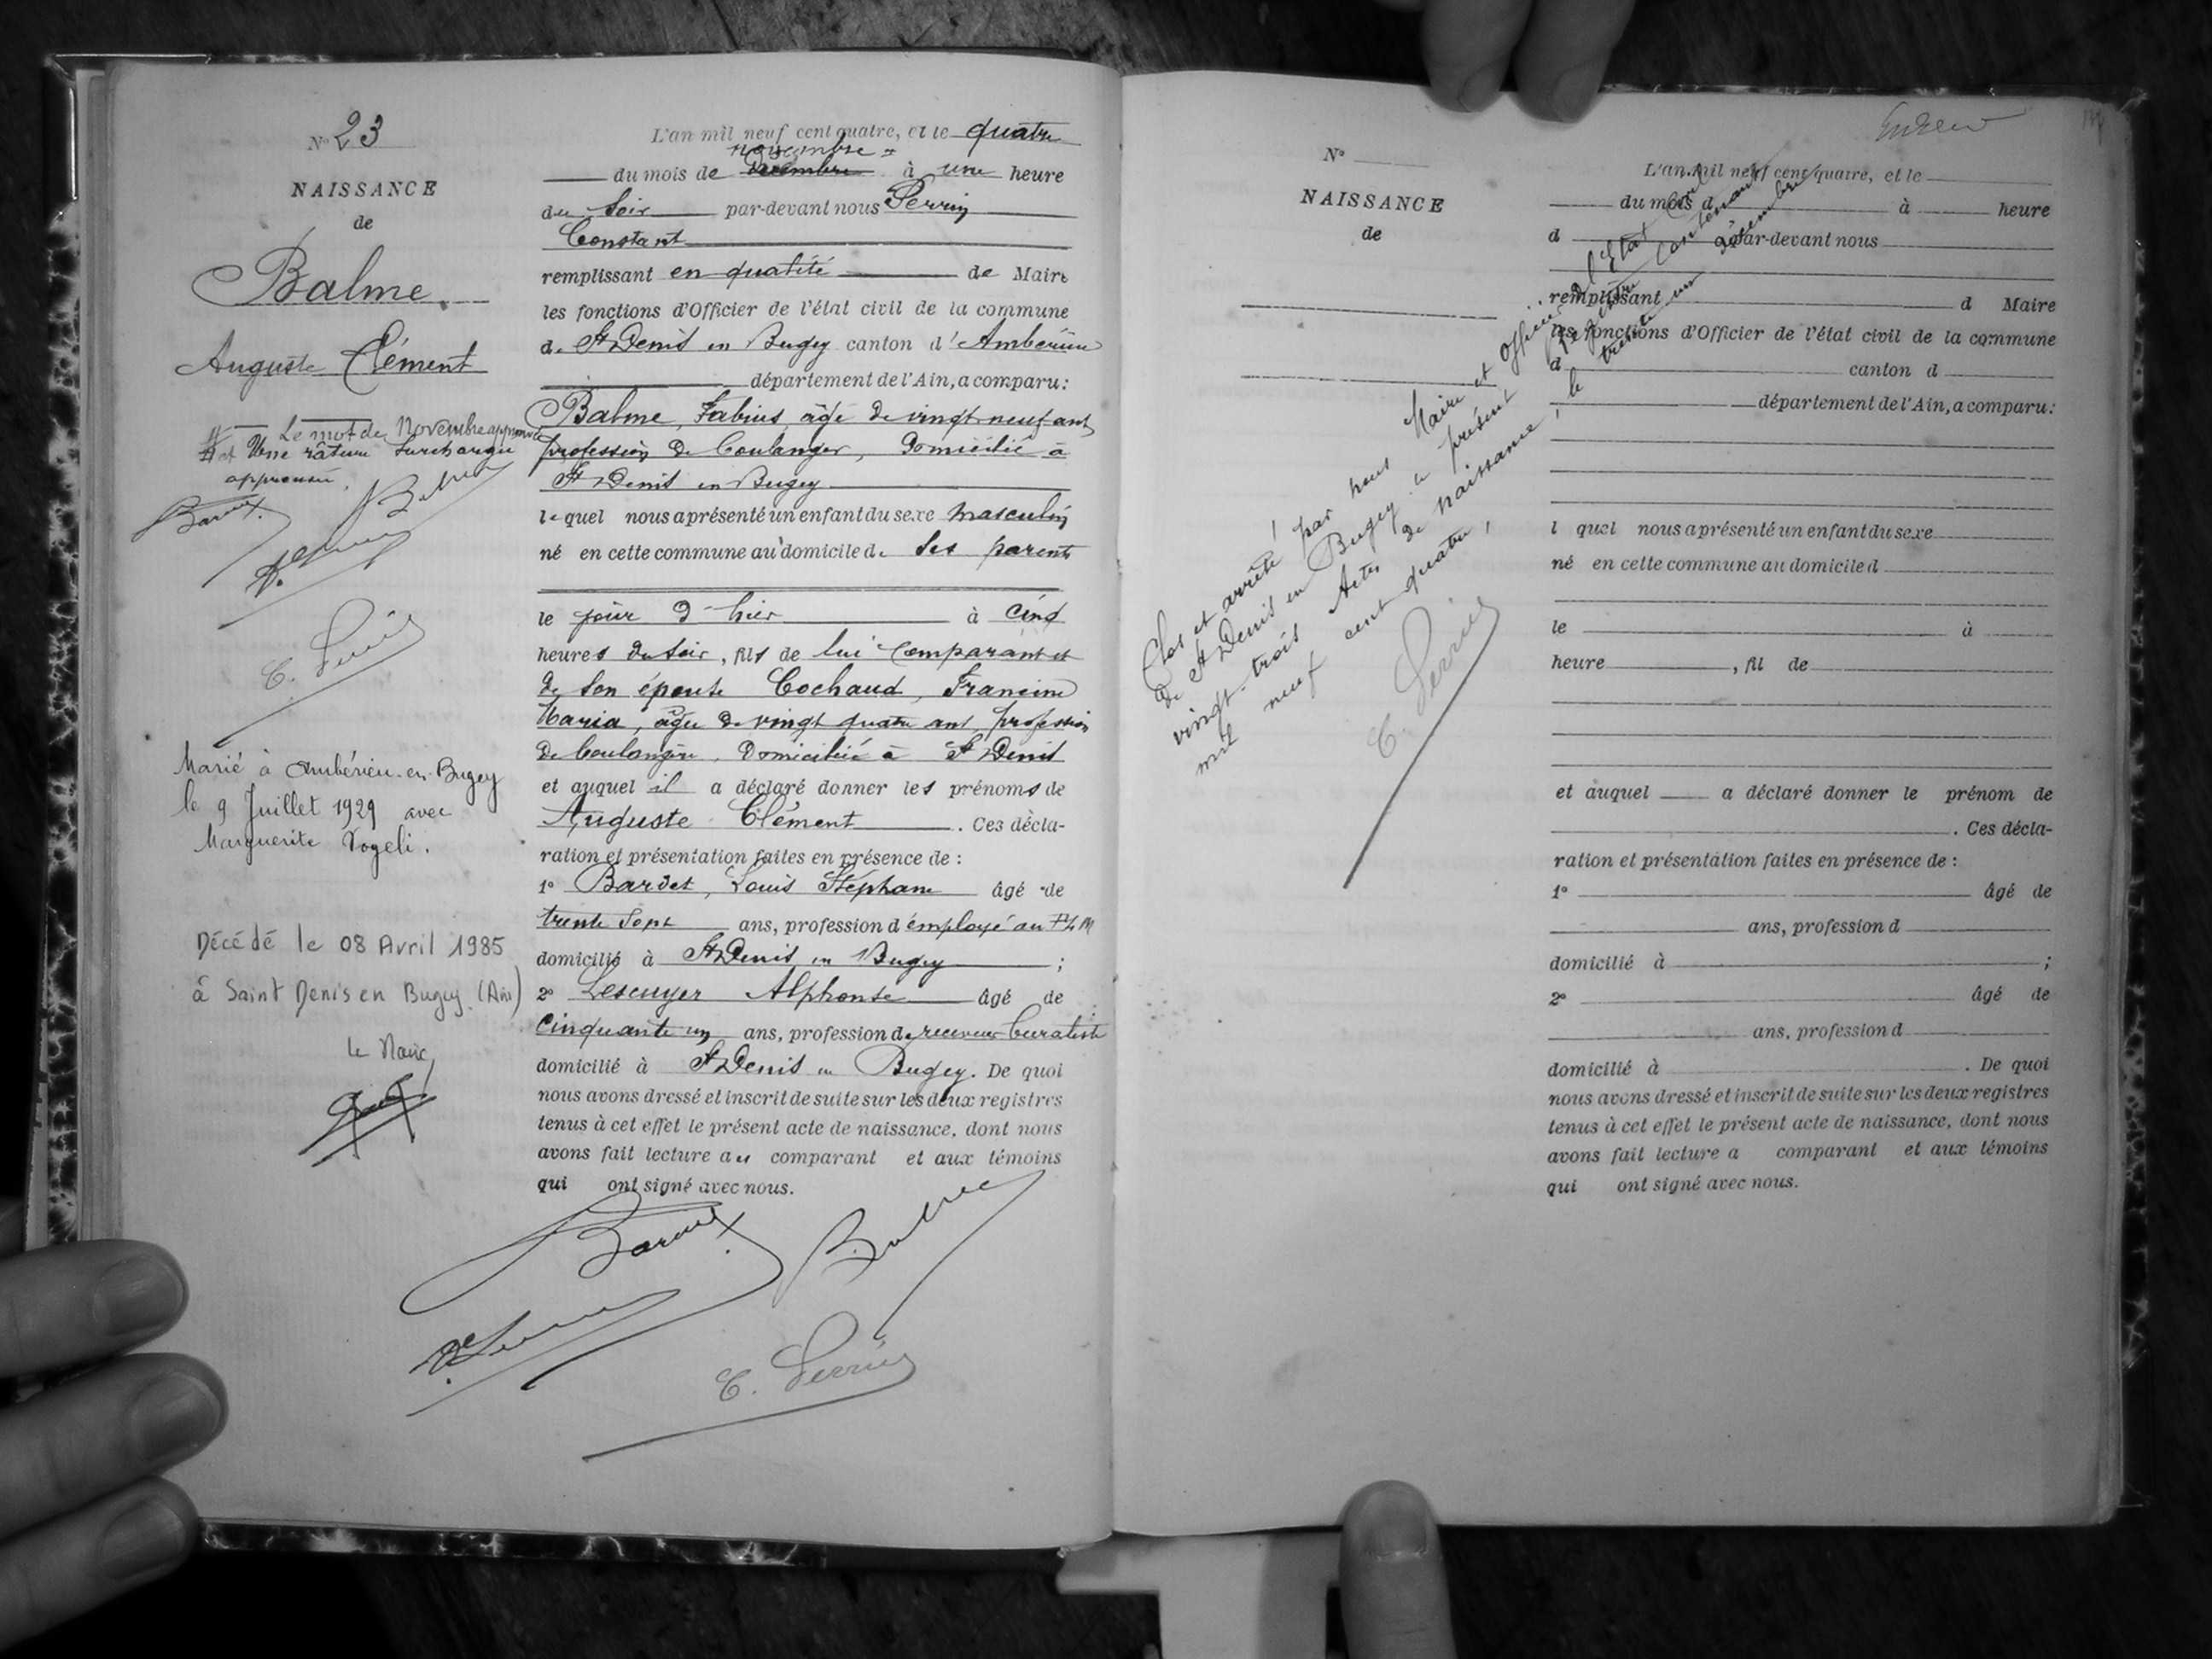 N° 23
NAISSANCE
de
Balme
Auguste Clément
Le mot de Novembre approuvé
et Une râture surchargée
approuvée.
Bardet
Balme
C. Perrin
Marié à Ambérieu-en-Bugey
le 9 Juillet 1929 avec
Marguerite Vogeli.
Décédé le 08 Avril 1985
à Saint Denis en Bugey (Ain)
le Maire,
L'an mil neuf cent quatre, et le quatre
novembre =
du mois de Decembre à une heure
du soir par-devant nous Perrin
Constant
remplissant en qualité de Maire
les fonctions d'Officier de l'état civil de la commune
de St Denis en Bugey canton d'Ambérieu
département de l'Ain, a comparu:
Balme, Fabius, âgé de vingt neuf ans
profession de boulanger, domicilié à
St Denis en Bugey
lequel nous a présenté un enfant du sexe masculin
né en cette commune au domicile de ses parents
le jour d'hier à cinq
heures du soir, fils de lui comparant et
de son épouse Cochaud, Francine
Maria, âgée de vingt quatre ans, profession
de boulangère, domiciliée à St Denis
et auquel il a déclaré donner les prénoms de
Auguste Clément. Ces décla-
ration et présentation faites en présence de :
1° Bardet, Louis Stéphane âgé de
trente sept ans, profession d'employé au PLM
domicilié à St Denis en Bugey ;
2° Lescuyer Alphonse âgé de
cinquante un ans, profession de receveur buraliste
domicilié à St Denis en Bugey. De quoi
nous avons dressé et inscrit de suite sur les deux registres
tenus à cet effet le présent acte de naissance, dont nous
avons fait lecture au comparant et aux témoins
qui ont signé avec nous.
Bardet
Balme
C. Perrin
N°
NAISSANCE
de
Clos et arrêté par nous Maire et Officier de l'Etat Civil
de St Denis en Bugey le présent registre contenant
vingt-trois Actes de naissance, le trente un décembre
mil neuf cent quatre,
C. Perrin
L'an mil neuf cent quatre, et le
du mois d à heure
d par-devant nous
remplissant d Maire
les fonctions d'Officier de l'état civil de la commune
d canton d
département de l'Ain, a comparu:
l quel nous a présenté un enfant du sexe
né en cette commune au domicile d
le à
heure , fil de
et auquel a déclaré donner le prénom de
. Ces décla-
ration et présentation faites en présence de :
1° âgé de
ans, profession d
domicilié à ;
2° âgé de
ans, profession d
domicilié à . De quoi
nous avons dressé et inscrit de suite sur les deux registres
tenus à cet effet le présent acte de naissance, dont nous
avons fait lecture a comparant et aux témoins
qui ont signé avec nous.